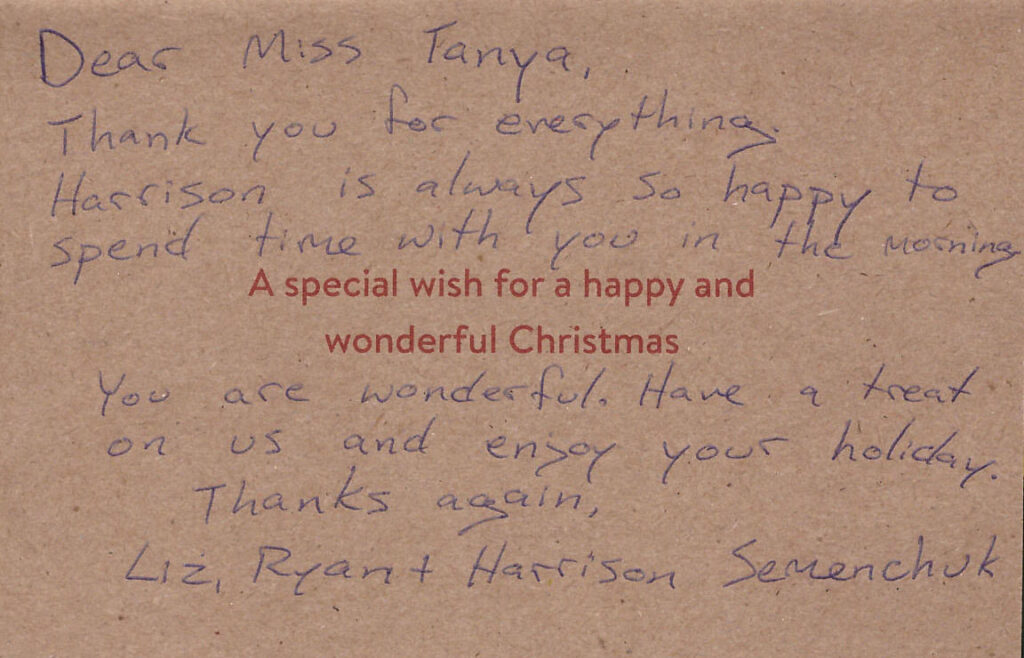 Dear Miss Tanya,
Thank you for everything.
Harrison is always so happy to
spend time with you in the morning
A special wish for a happy and
wonderful Christmas
You are wonderful. Have a treat
on us and enjoy your holiday.
Thanks again,
Liz, Ryan + Harrison Semenchuk